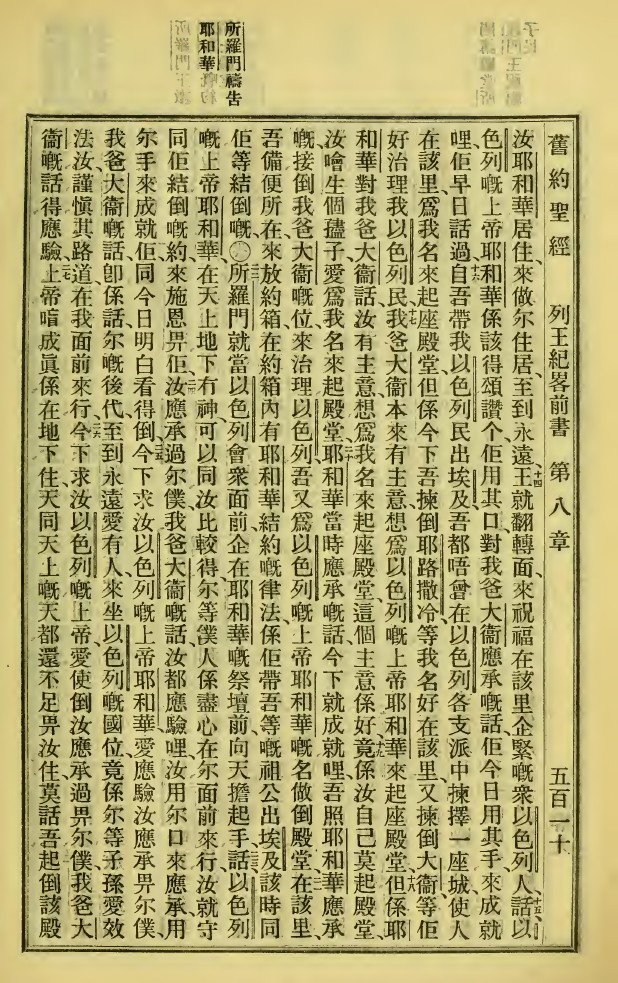 舊約聖經 列王紀畧前書 第八章 五百一十
汝耶和華居住、來做尔住居、至到永遠、十四王就翻轉面、來祝福在該里企緊嘅衆以色列人、十五話、以
色列嘅上帝耶和華係該得頌讚个、佢用其口、對我爸大衞應承嘅話、佢今日用其手、來成就
哩、十六佢早日話過、自吾帶我以色列民出埃及、吾都唔曾在以色列各支派中揀擇一座城、使人
在該里爲我名來起座殿堂、但係今下吾揀倒耶路撒冷、等我名好在該里、又揀倒大衞、等佢
好治理我以色列民、十七我爸大衞本來有主意、想爲以色列嘅上帝耶和華來起座殿堂、十八但係耶
和華對我爸大衞話、汝有主意想爲我名來起座殿堂、這個主意係好、十九竟係汝自己莫起殿堂、
汝噲生個孻子、愛爲我名來起殿堂、二十耶和華當時應承嘅話、今下就成就哩、吾照耶和華應承
嘅、接倒我爸大衞嘅位、來治理以色列、吾又爲以色列嘅上帝耶和華嘅名做倒殿堂、二一在該里、
吾備便所在、來放約箱、在約箱內有耶和華結約嘅律法、係佢帶吾等嘅祖公出埃及、該時同
佢等結倒嘅、〇二二所羅門就當以色列會衆面前、企在耶和華嘅祭壇前、向天擔起手、二三話、以色列
嘅上帝耶和華、在天上地下、有神可以同汝比較得、尔等僕人係盡心在尔面前來行、汝就守
同佢結倒嘅約、來施恩畀佢、二四汝應承過尔僕我爸大衞嘅話、汝都應驗哩、汝用尔口來應承、用
尔手來成就佢、同今日明白看得倒、二五今下求汝以色列嘅上帝耶和華、愛應驗汝應承畀尔僕、
我爸大衞嘅話、卽係話、尔嘅後代至到永遠愛有人、來坐以色列嘅國位、竟係尔等子孫愛效
法汝、謹愼其路道、在我面前來行、二六今下求汝以色列嘅上帝、愛使倒汝應承過畀尔僕、我爸大
衞嘅話、得應驗、二七上帝唁成眞係在地下住、天同天上嘅天、都還不足畀汝住、莫話吾起倒該殿
所羅門禱告
耶和華